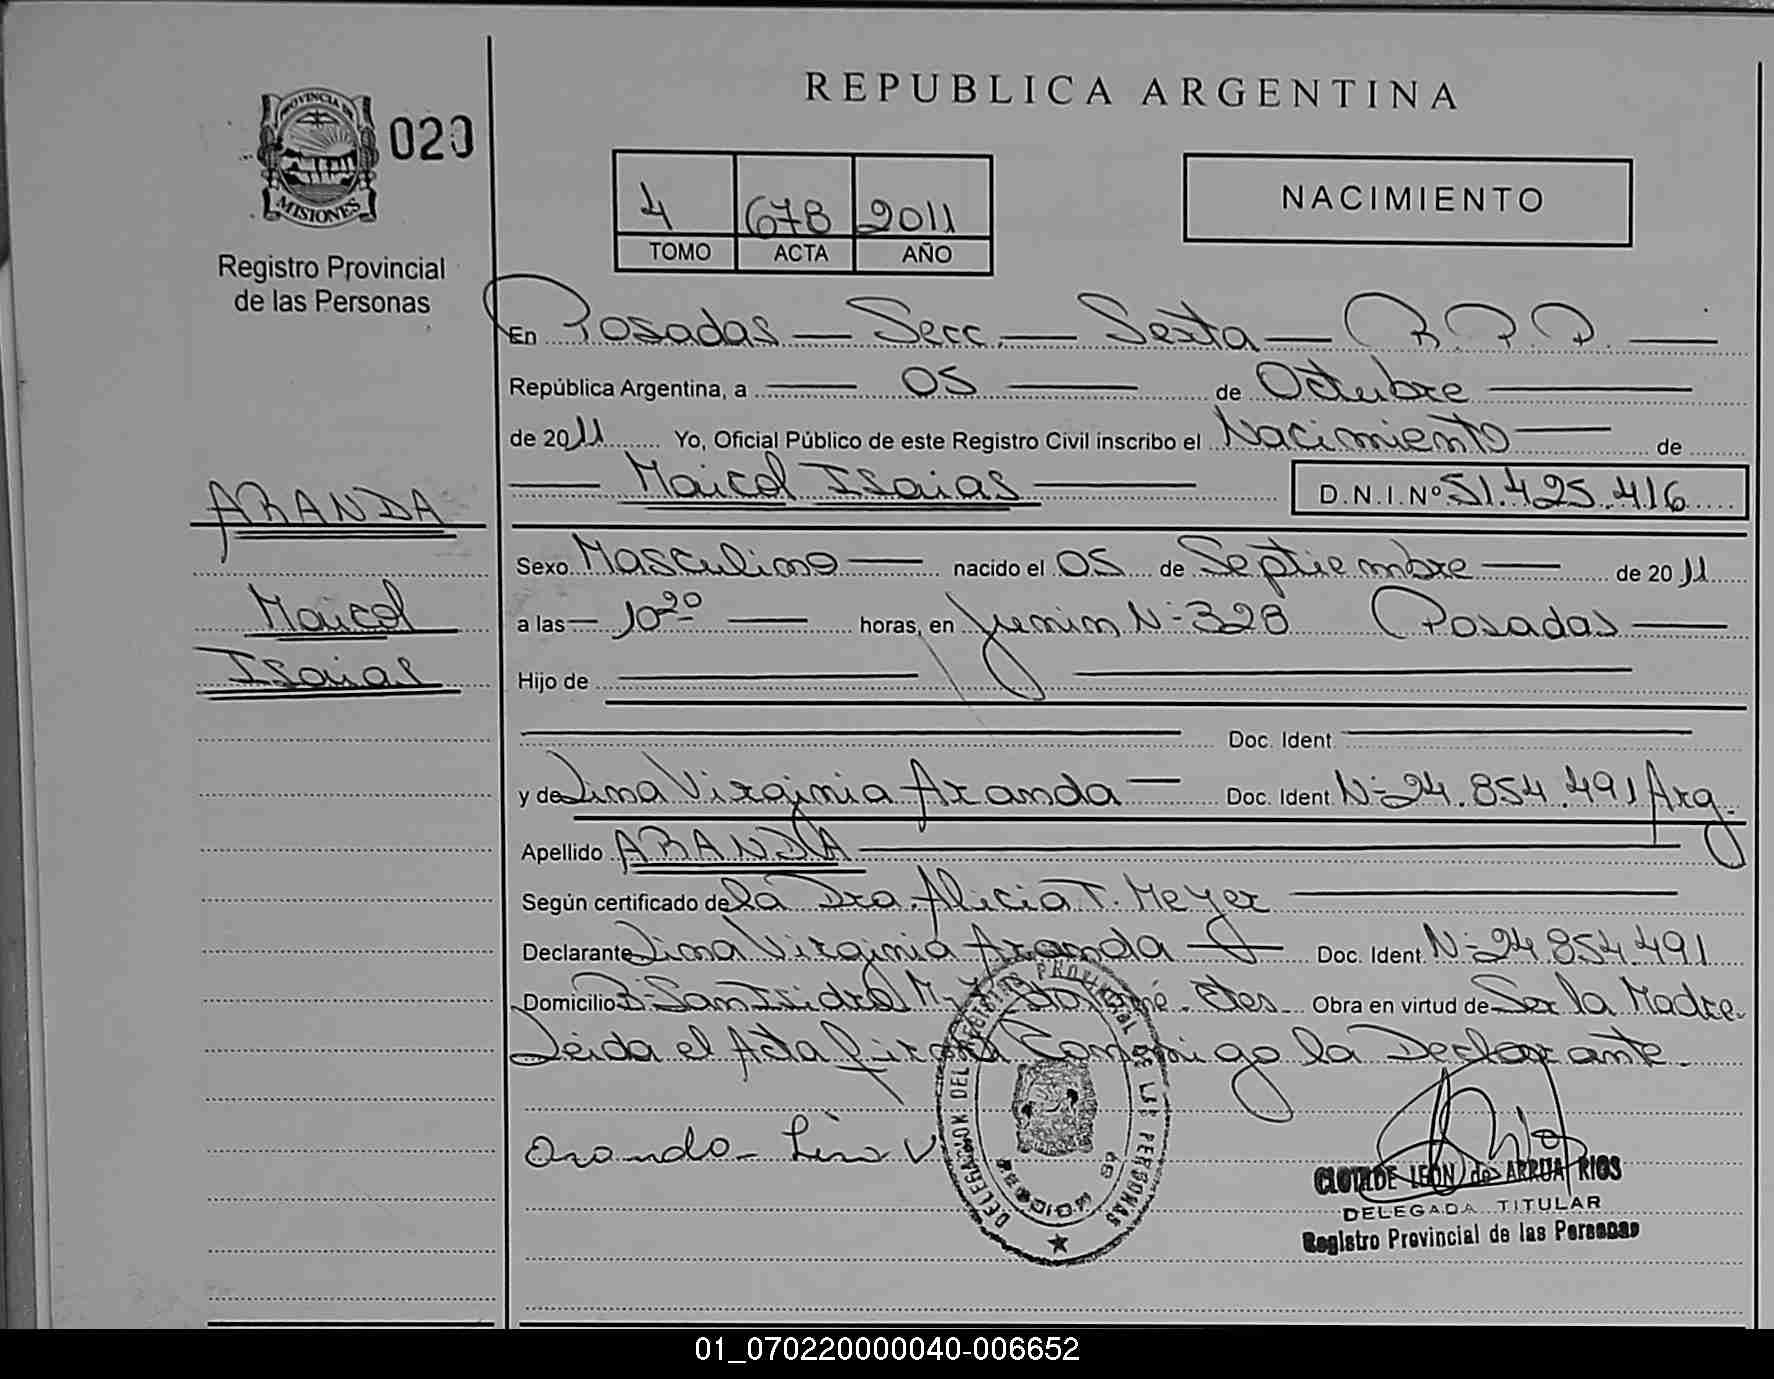 REPUBLICA ARGENTINA
PROVINCIA DE
MISIONES
020
Registro Provincial
de las Personas
4 678 2011
TOMO ACTA AÑO
NACIMIENTO
En Posadas — Secc. — Sexta — R.P.P. —
República Argentina, a — 05 — de Octubre —
de 2011 Yo, Oficial Público de este Registro Civil inscribo el Nacimiento — de
— Maicol Isaias — D.N.I. Nº 51.425.416
ARANDA
Maicol
Isaias
Sexo Masculino — nacido el 05 de Septiembre — de 2011
a las — 10 20 — horas, en Junin N- 328 Posadas —
Hijo de —
— Doc. Ident. —
y de Lina Virginia Aranda — Doc. Ident. N- 24.854.491 Arg.
Apellido ARANDA —
Según certificado de la Dra. Alicia T. Meyer —
Declarante Lina Virginia Aranda — Doc. Ident. N- 24.854.491
Domicilio B- San Isidro Obra en virtud de Ser la Madre.
Leida el Acta firma Conmigo la Declarante.
Aranda - Lina V
DELEGACION DEL REGISTRO PROVINCIAL DE LAS PERSONAS
CLOTILDE LEON de ARRUA RIOS
DELEGADA TITULAR
Registro Provincial de las Personas
01_070220000040-006652